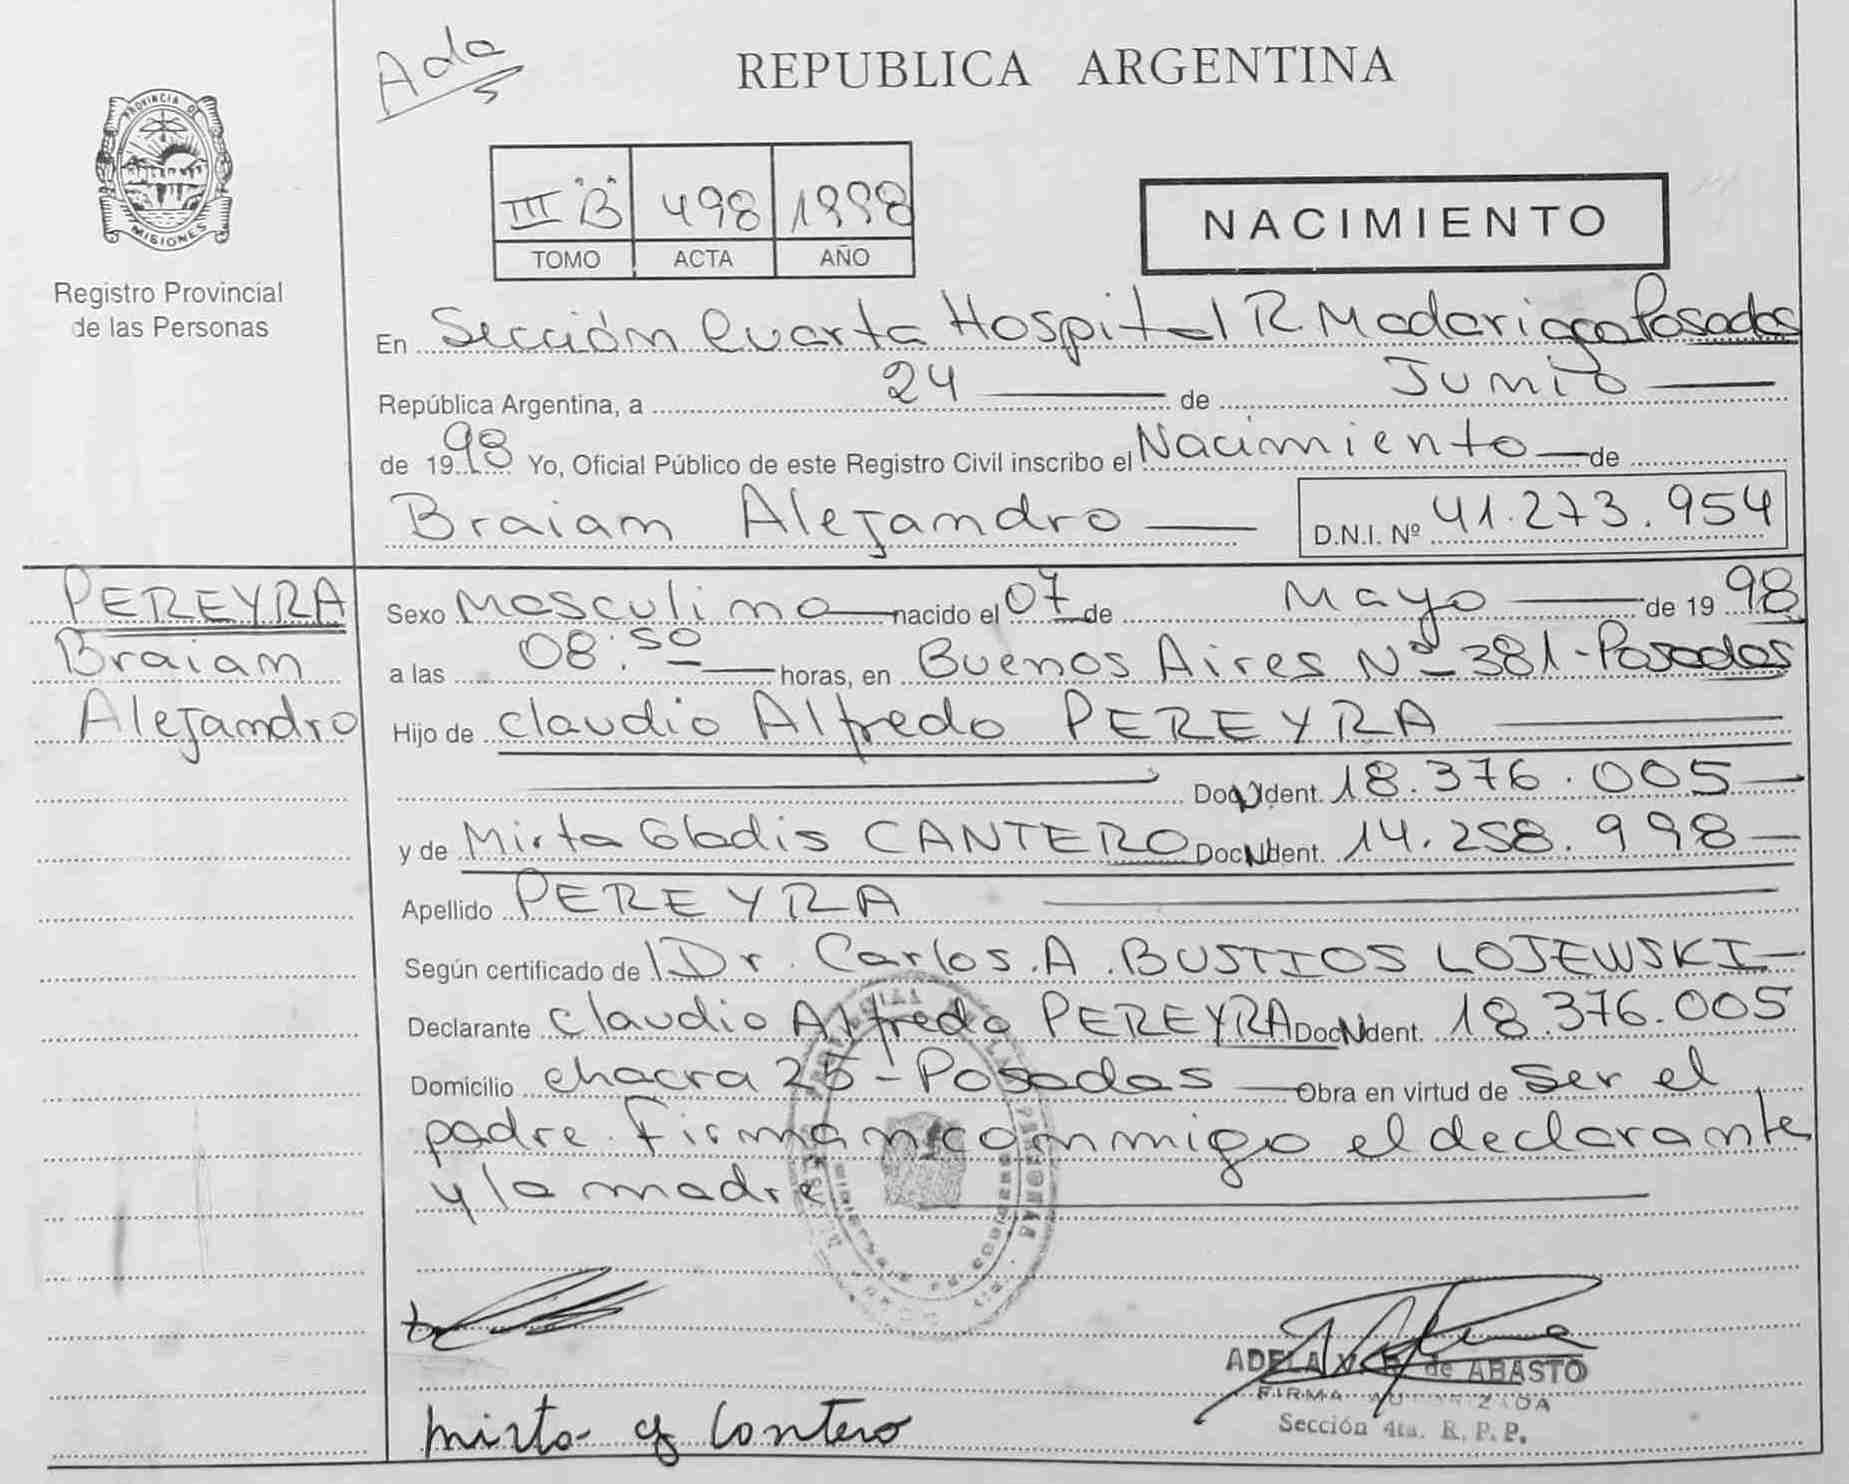 Ada
REPUBLICA ARGENTINA
PROVINCIA DE
MISIONES
Registro Provincial
de las Personas
III "B" 498 1998
TOMO ACTA AÑO
NACIMIENTO
En Sección Cuarta Hospital R. Madariaga Posadas
República Argentina, a 24 de Junio
de 1998 Yo, Oficial Público de este Registro Civil inscribo el Nacimiento de
Braiam Alejandro D.N.I. Nº 41.273.954
PEREYRA
Braiam
Alejandro
Sexo Masculino nacido el 07 de Mayo de 1998
a las 08:50 horas, en Buenos Aires Nº 381-Posadas
Hijo de Claudio Alfredo PEREYRA
Doc. Ident. 18.376.005
y de Mirta Gladis CANTERO Doc. Ident. 14.258.998
Apellido PEREYRA
Según certificado de Dr. Carlos.A.BUSTIOS LOJEWSKI
Declarante Claudio Alfredo PEREYRA Doc. Ident. 18.376.005
Domicilio chacra 25-Posadas Obra en virtud de Ser el
padre. Firman conmmigo el declarante
y la madre
ADELA de ABASTO
FIRMA AUTORIZADA
Sección 4ta. R.P.P.
Mirta g Cantero